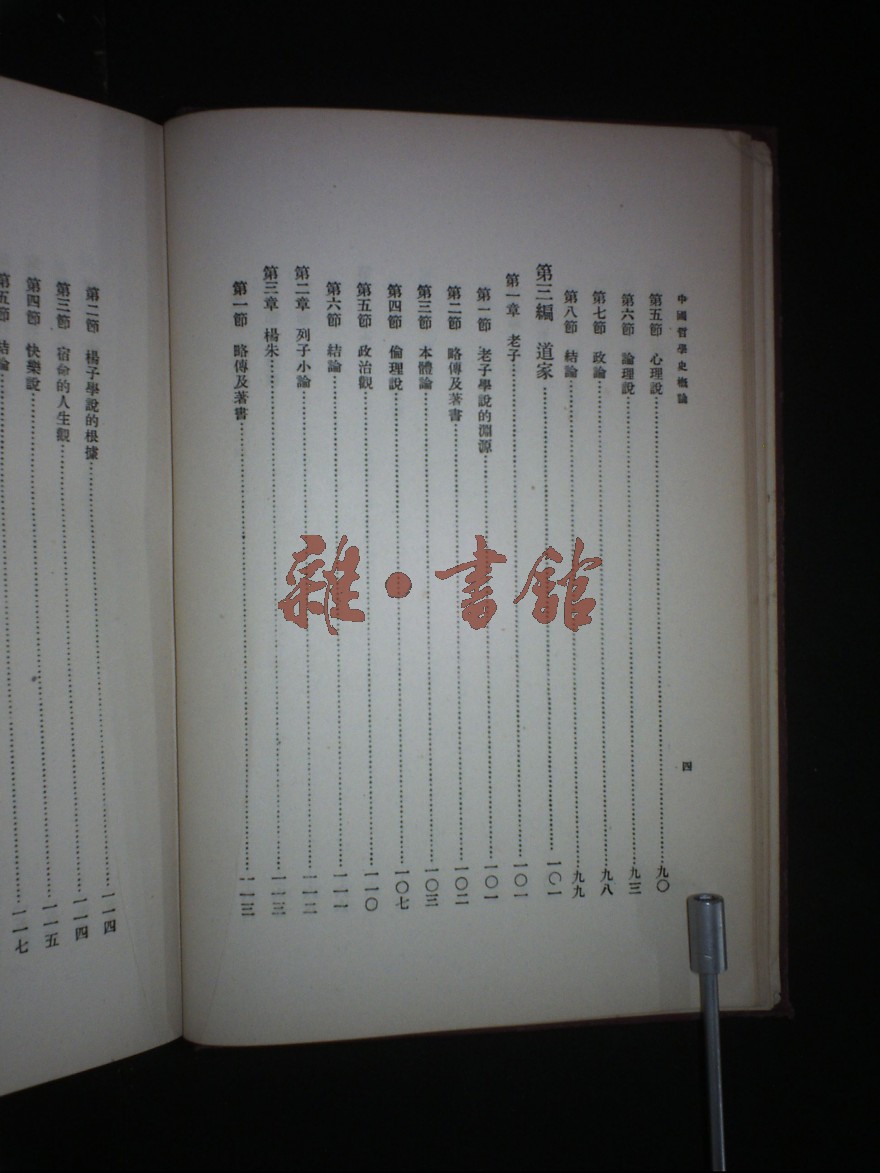 中國哲學史概論
四
第五節 心理說 九〇
第六節 論理說 九三
第七節 政論 九八
第八節 結論 九九
第三編 道家 一〇一
第一章 老子 一〇一
第一節 老子學說的淵源 一〇一
第二節 略傳及著書 一〇二
第三節 本體論 一〇三
第四節 倫理說 一〇七
第五節 政治觀 一一〇
第六節 結論 一一一
第二章 列子小論 一一二
第三章 楊朱 一一三
第一節 略傳及著書 一一三
第二節 楊子學說的根據 一一四
第三節 宿命的人生觀 一一四
第四節 快樂說 一一五
第五節 結論 一一七
雜·書館